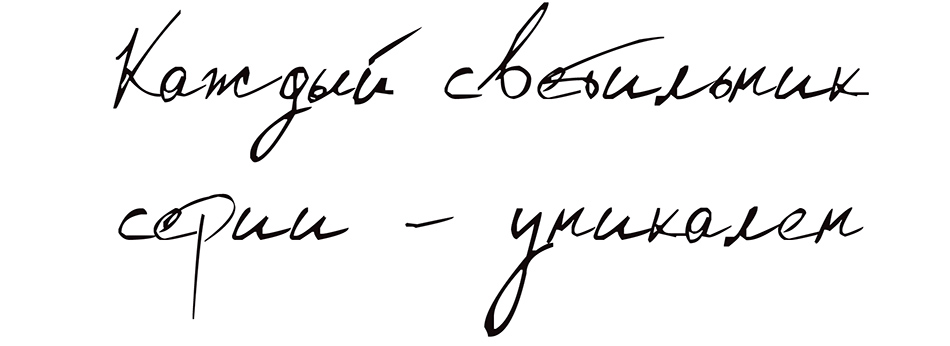 Каждый светильник
серии – уникален